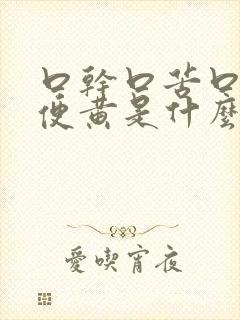 口幹口苦口
便黃是什麼
愛喫宵夜